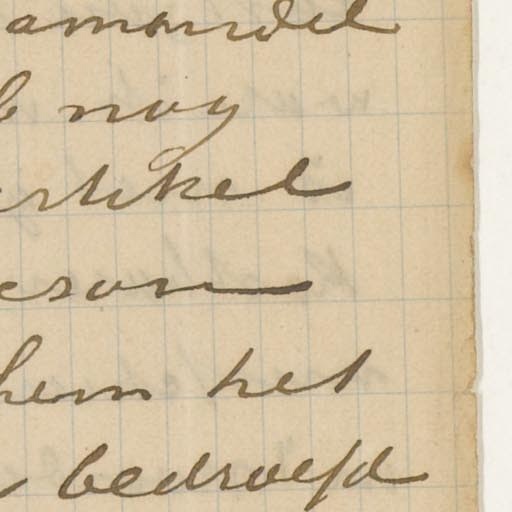 amandel
nog
artikel
eson
hem het
bedroefd